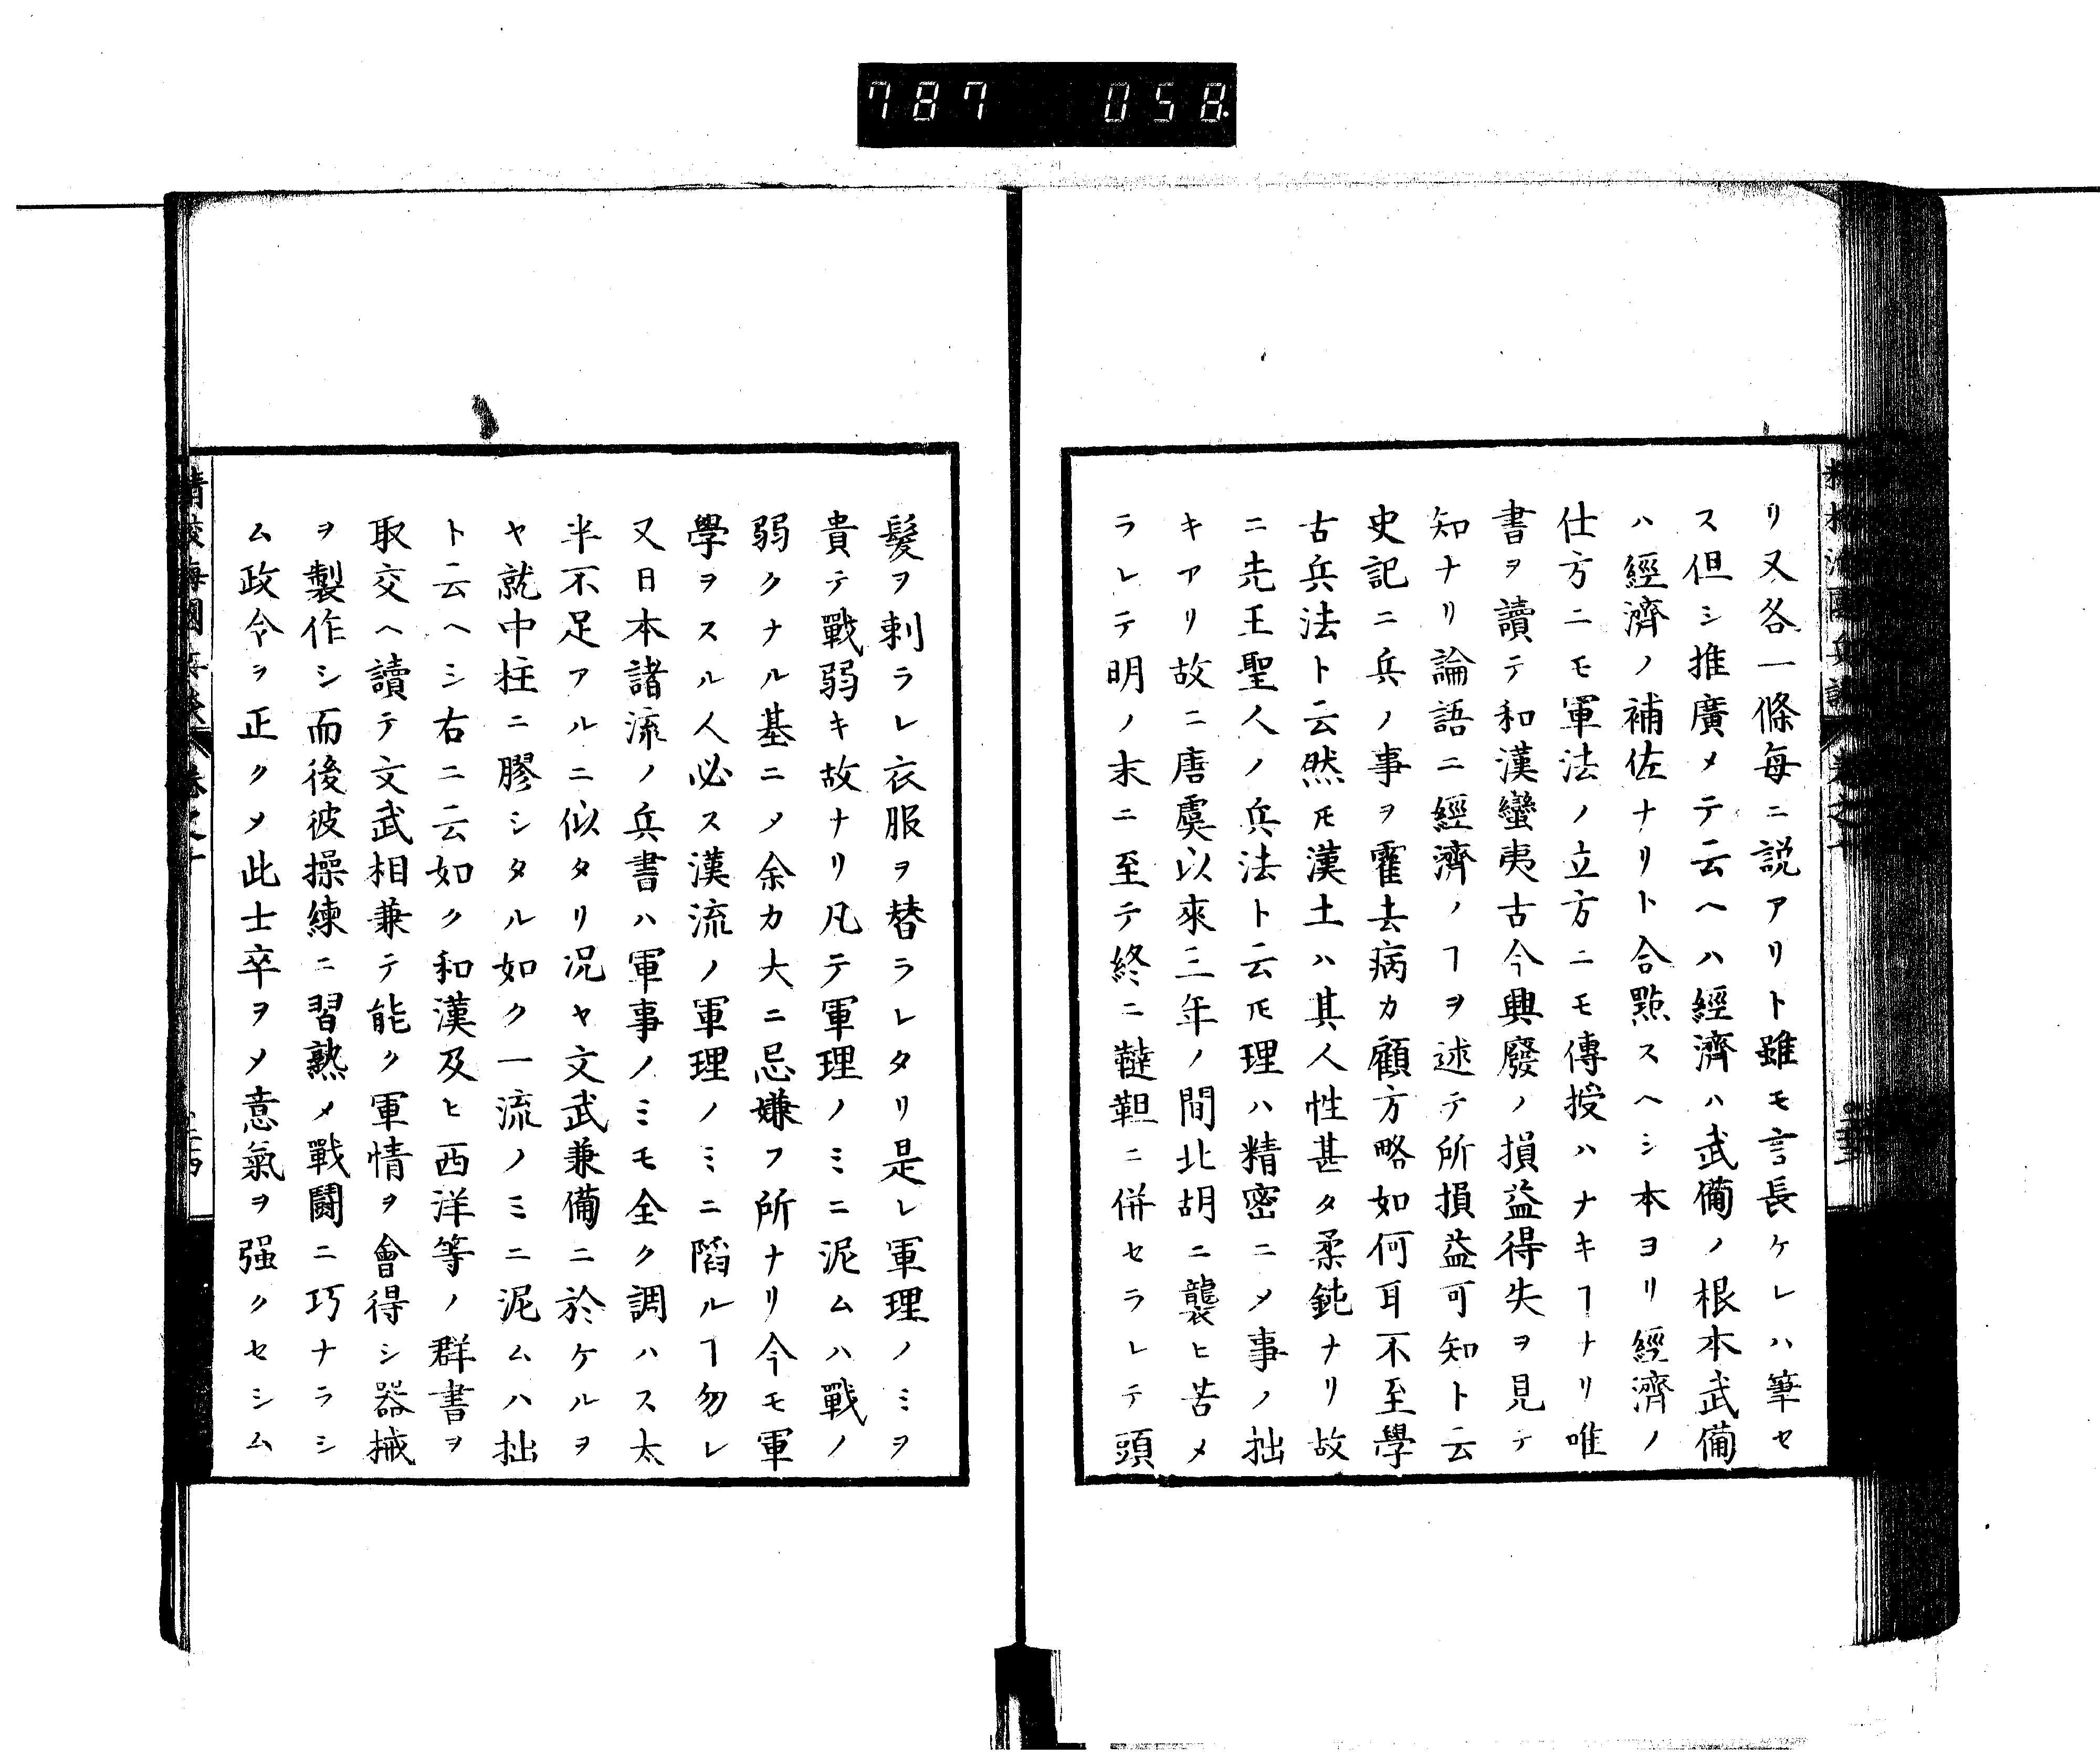 787 058
リ又各一條每ニ説アリト雖モ言長ケレハ筆セ
ス但シ推廣メテ云ヘハ經濟ハ武備ノ根本武備
ハ經濟ノ補佐ナリト合點スヘシ本ヨリ經濟ノ
仕方ニモ軍法ノ立方ニモ傳授ハナキヿナリ唯
書ヲ讀テ和漢蠻夷古今興廢ノ損益得失ヲ見テ
知ナリ論語ニ經濟ノヿヲ述テ所損益可知ト云
史記ニ兵ノ事ヲ霍去病カ顧方略如何耳不至學
古兵法ト云然𪜈漢土ハ其人性甚タ柔鈍ナリ故
ニ先王聖人ノ兵法ト云𪜈理ハ精密ニメ事ノ拙
キアリ故ニ唐虞以來三年ノ間北胡ニ襲ヒ苦メ
ラレテ明ノ末ニ至テ終ニ韃靼ニ併セラレテ頭
髮ヲ剃ラレ衣服ヲ替ラレタリ是レ軍理ノミヲ
貴テ戰弱キ故ナリ凡テ軍理ノミニ泥ムハ戰ノ
弱クナル基ニメ余カ大ニ忌嫌フ所ナリ今モ軍
學ヲスル人必ス漢流ノ軍理ノミニ陷ルヿ勿レ
又日本諸流ノ兵書ハ軍事ノミモ全ク調ハス太
半不足アルニ似タリ況ヤ文武兼備ニ於ケルヲ
ヤ就中柱ニ膠シタル如ク一流ノミニ泥ムハ拙
ト云ヘシ右ニ云如ク和漢及ヒ西洋等ノ群書ヲ
取交ヘ讀テ文武相兼テ能ク軍情ヲ會得シ器械
ヲ製作シ而後彼操練ニ習熟メ戰鬪ニ巧ナラシ
ム政令ヲ正クメ此士卒ヲメ意氣ヲ强クセシム